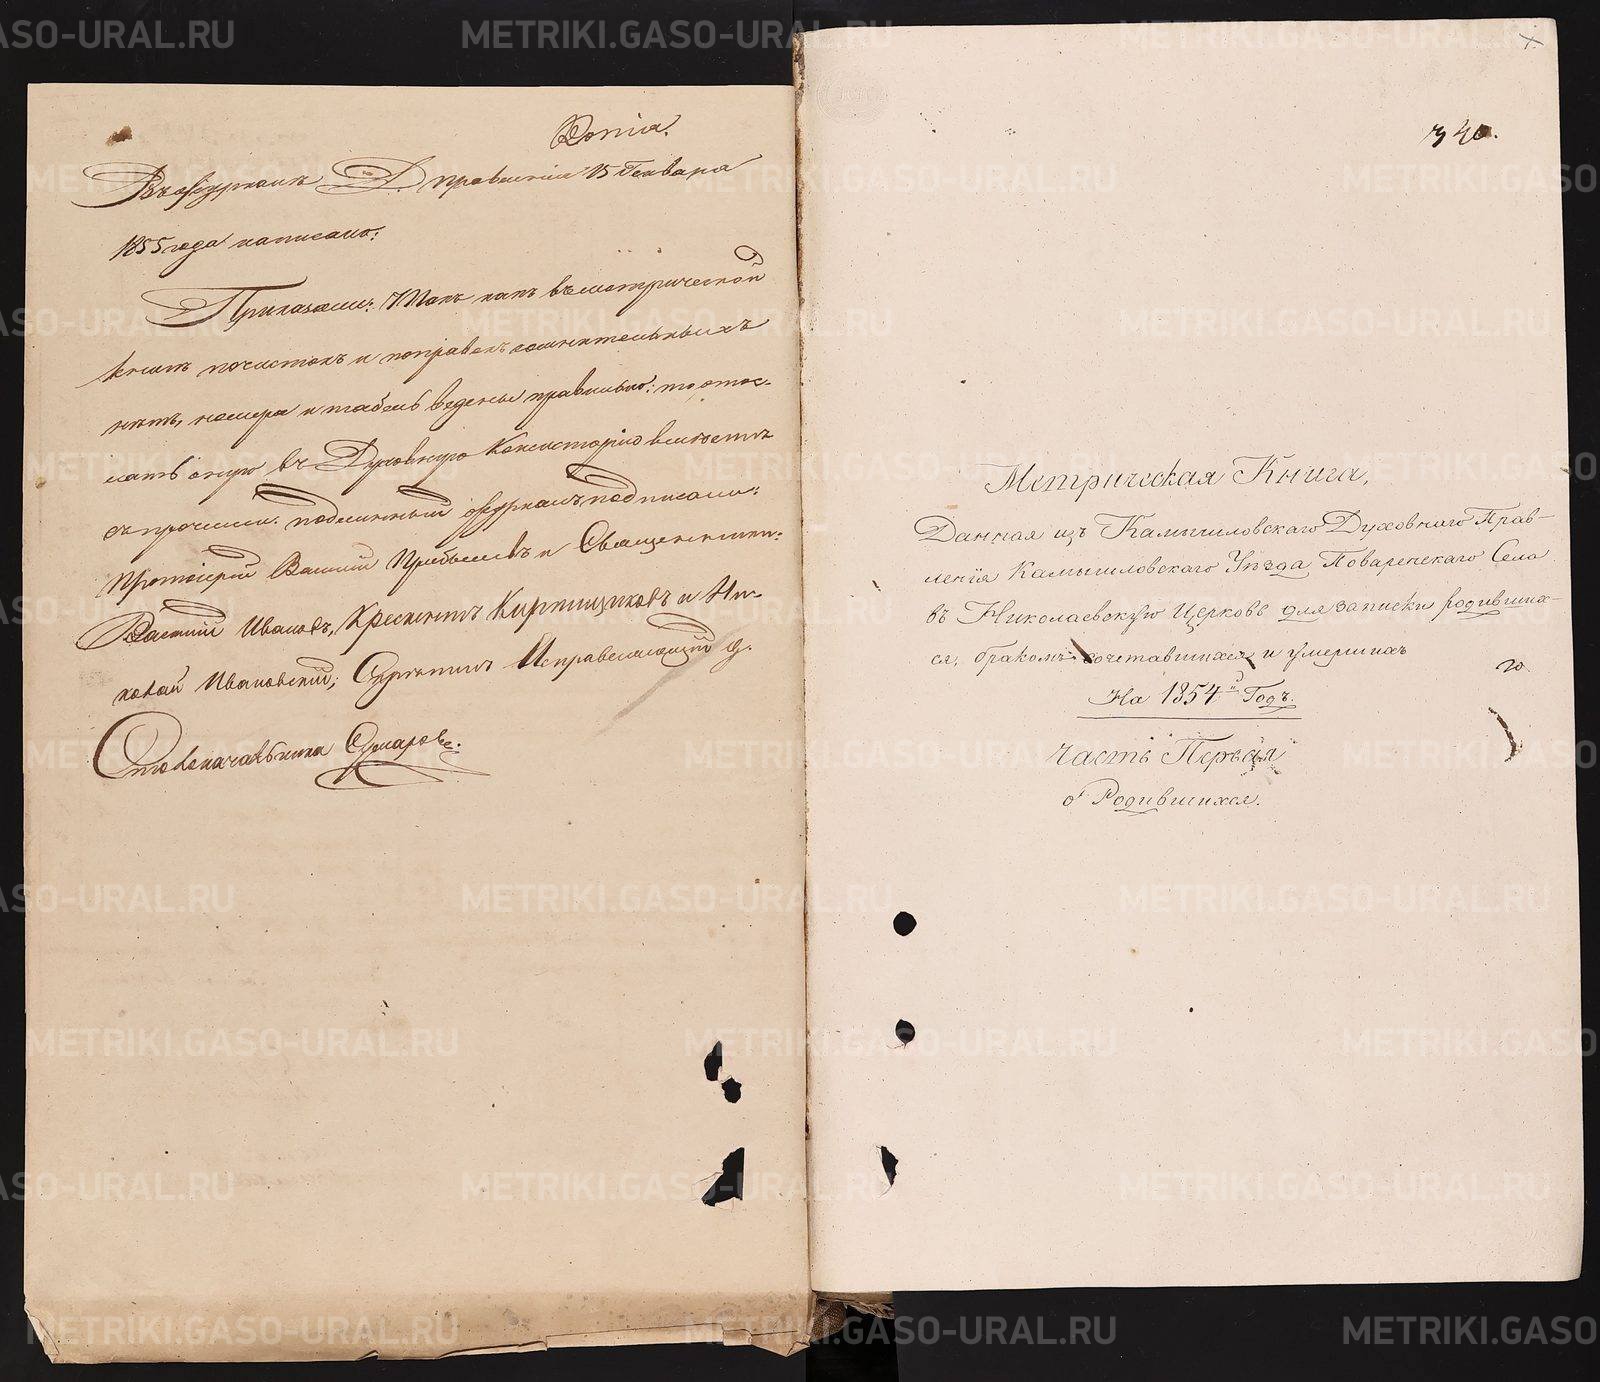 Копія.
Въ журналѣ Д. правленія 15 Генваря
1855 года написано:
Приказали: Такъ какъ въ метрической
книгѣ почистокъ и поправокъ сомнительныхъ
нѣтъ, номера и табель ведены правильно: то отос-
лать оную въ Духовную Консисторію вмѣстѣ
съ прочими. подлинный журналъ подписали:
Протоіерей Василій и Священники:
Василій Ивановъ, Кирпищиковъ и Ни-
колай Ивановскій; Скрѣпилъ Исправляющій д.
Столоначальника
340.
Метрическая Книга,
Данная изъ Камышловскаго Духовнаго Прав-
ленія Камышловскаго Уѣзда Поваренскаго Села
въ Николаевскую Церковь для записки родивших-
ся, бракомъ сочетавшихся и умершихъ
На 1854й Годъ.
Часть Первая
о Родившихся.
METRIKI.GASO-URAL.RU